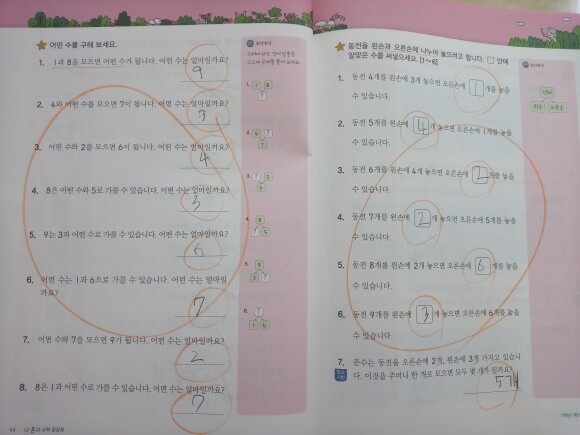 어떤 수를 구해 보세요.
1. 1과 8을 모으면 어떤 수가 됩니다. 어떤 수는 얼마일까요?
9
2. 4와 어떤 수를 모으면 7이 됩니다. 어떤 수는 얼마일까요?
3
3. 어떤 수와 2를 모으면 6이 됩니다. 어떤 수는 얼마일까요?
4
4. 8은 어떤 수와 5로 가를 수 있습니다. 어떤 수는 얼마일까요?
3
5. 9는 3과 어떤 수로 가를 수 있습니다. 어떤 수는 얼마일까요?
6
6. 어떤 수는 1과 6으로 가를 수 있습니다. 어떤 수는 얼마일
까요?
7
7. 어떤 수와 7을 모으면 9가 됩니다. 어떤 수는 얼마일까요?
2
8. 8은 1과 어떤 수로 가를 수 있습니다. 어떤 수는 얼마일까요?
7
44
1.
1 8
?
2.
?
7
3.
? 2
6
4.
8
? 5
5.
9
3 ?
6.
?
1 6
동전을 왼손과 오른손에 나누어 놓으려고 합니다. □ 안에
알맞은 수를 써넣으세요. [1~6]
1. 동전 4개를 왼손에 3개 놓으면 오른손에 1 개를 놓을
수 있습니다.
2. 동전 5개를 왼손에 4 개 놓으면 오른손에 1개를 놓을
수 있습니다.
3. 동전 6개를 왼손에 4개 놓으면 오른손에 2 개를 놓을
수 있습니다.
4. 동전 7개를 왼손에 2 개 놓으면 오른손에 5개를 놓을
수 있습니다.
5. 동전 8개를 왼손에 2개 놓으면 오른손에 6 개를 놓을
수 있습니다.
6. 동전 9개를 왼손에 3 개 놓으면 오른손에 6개를 놓을
수 있습니다.
7. 준수는 동전을 오른손에 2개, 왼손에 3개 가지고 있습니
다. 이것을 주머니 한 개로 모으면 모두 몇 개가 될까요?
5개